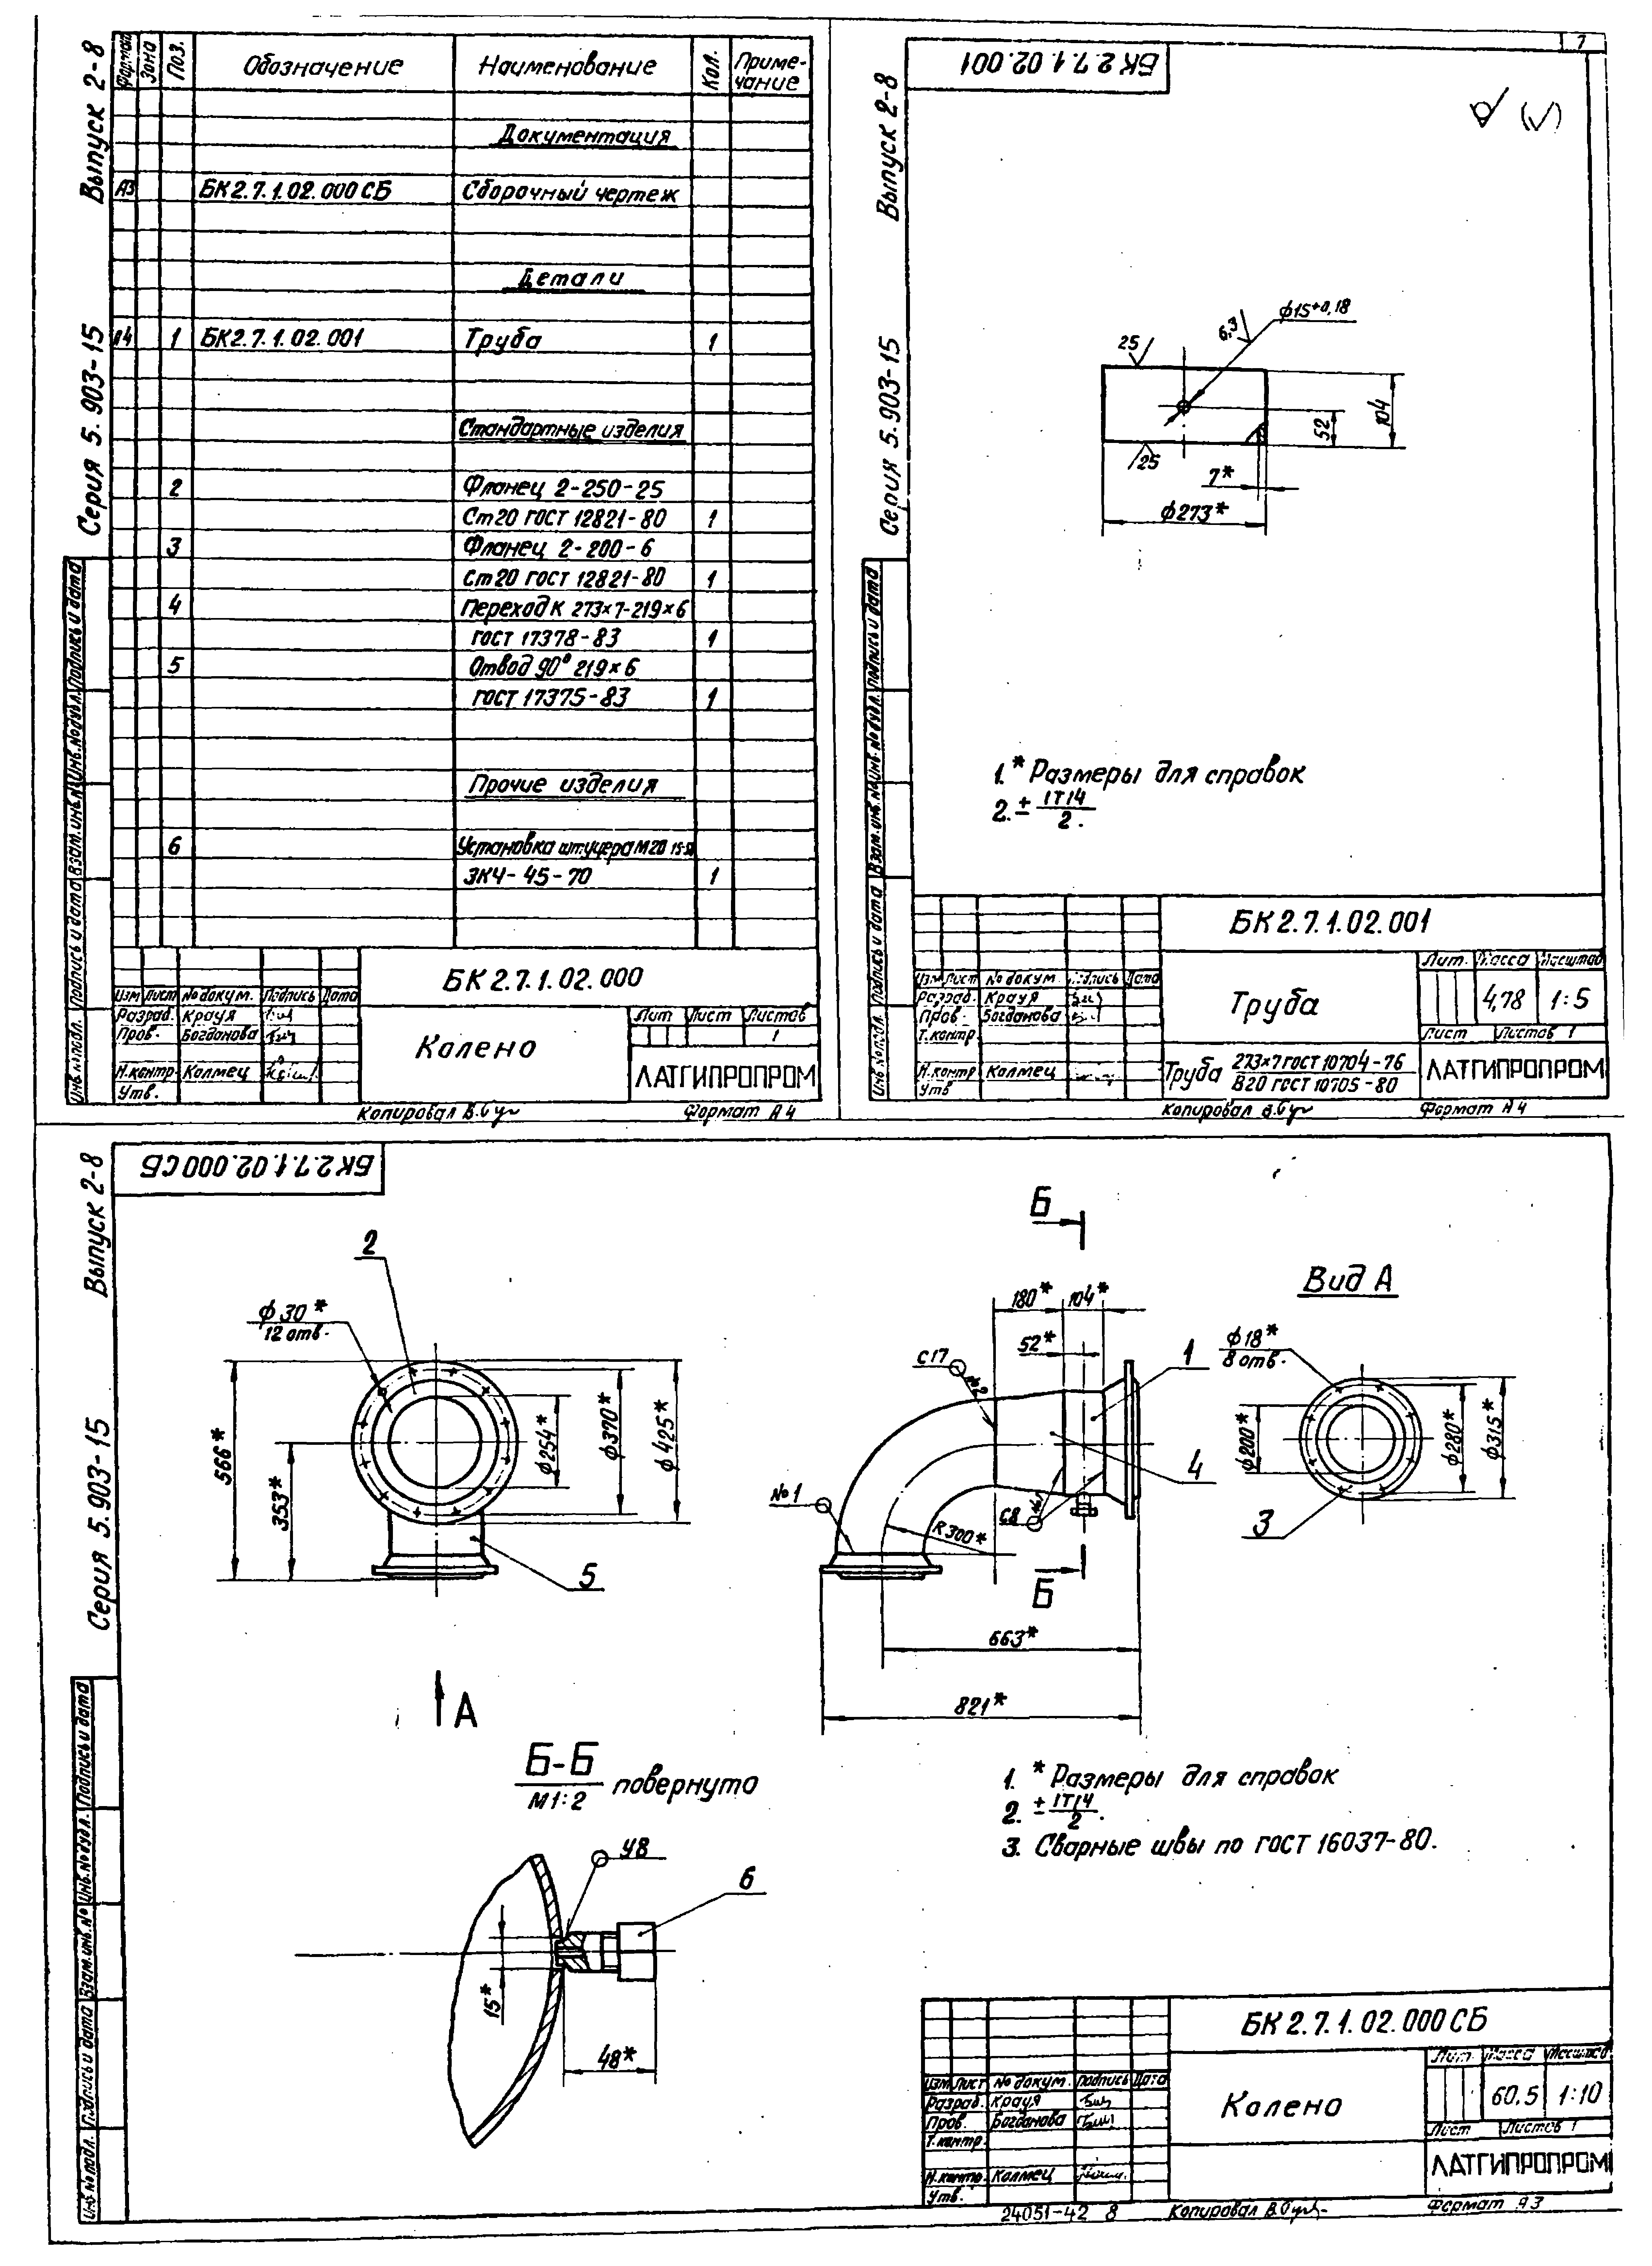 Серия 5.903-15 Выпуск 2-8
Формат Зона Поз. Обозначение Наименование Кол. Приме-
чание
Документация
А3 БК2.7.1.02.000СБ Сборочный чертеж
Детали
А4 1 БК2.7.1.02.001 Труба 1
Стандартные изделия
2 Фланец 2-250-25
Ст20 ГОСТ 12821-80 1
3 Фланец 2-200-6
Ст20 ГОСТ 12821-80 1
4 Переход К 273×7-219×6
ГОСТ 17378-83 1
5 Отвод 90° 219×6
ГОСТ 17375-83 1
Прочие изделия
6 Установка штуцера М20
ЗК4-45-70 1
Инв.№подл. Подпись и дата Взам.инв.№ Инв.№дубл. Подпись и дата
БК2.7.1.02.000
Изм Лист № докум. Подпись Дата
Разраб. Крауя
Пров. Богданова
Н.контр. Колмец
Утв.
Колено
Лит Лист Листов
1
ЛАТГИПРОПРОМ
Копировал Формат А4
7
Серия 5.903-15 Выпуск 2-8
БК2.7.1.02.001
φ15+0,18
6,3
25
52
104
25
7*
φ273*
1.* Размеры для справок
2. ± IT14
2.
Инв.№подл. Подпись и дата Взам.инв.№ Инв.№дубл. Подпись и дата
БК2.7.1.02.001
Изм Лист № докум. Подпись Дата
Разраб. Крауя
Пров. Богданова
Т.контр.
Н.контр. Колмец
Утв
Труба
Лит. Масса Масштаб
4,78 1:5
Лист Листов 1
Труба 273×7 ГОСТ 10704-76
В20 ГОСТ 10705-80
ЛАТГИПРОПРОМ
Копировал Формат А4
Серия 5.903-15 Выпуск 2-8
БК2.7.1.02.000СБ
2
φ30*
12 отв.
566*
353*
φ254*
φ370*
φ425*
5
А
Б
180* 104*
52*
С17
№2
1
4
№1
С8
R300*
Б
663*
821*
Вид А
φ18*
8 отв.
φ200*
φ280*
φ315*
3
Б-Б повернуто
М1:2
У8
6
15*
48*
1. * Размеры для справок
2. ± IT14
2.
3. Сварные швы по ГОСТ 16037-80.
Инв.№подл. Подпись и дата Взам.инв.№ Инв.№дубл. Подпись и дата
БК2.7.1.02.000СБ
Изм Лист № докум. Подпись Дата
Разраб. Крауя
Пров. Богданова
Т.контр.
Н.контр. Колмец
Утв.
Колено
Лит. Масса Масштаб
60,5 1:10
Лист Листов 1
ЛАТГИПРОПРОМ
24051-42 8 Копировал Формат А3